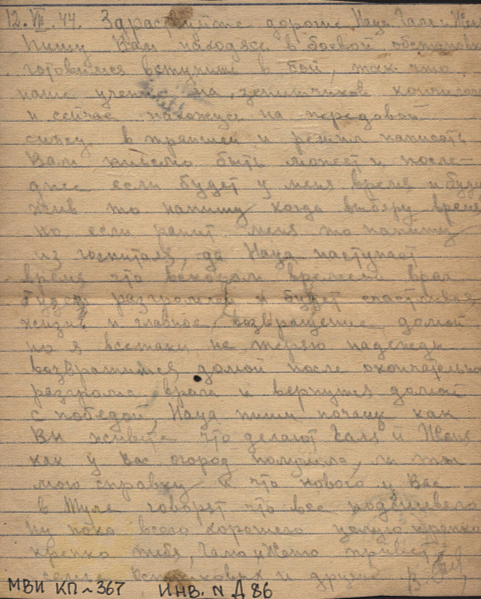 12.VII.44. Здраствуйте дорогие Нада Галя и Женя
Пишу Вам находясь в боевой обстановке
готовимся вступить в бой, так что
наше учение на зенитчиков кончилось
и сейчас нахожусь на передовой
сижу в траншеи и решил написать
Вам письмо быть может и после-
днее если будет у меня время и буду
жив то напишу когда выберу время
но если ранит меня то напишу
из госпиталя, да Надя наступает
время что вскором времени враг
будет разгромлен и будет счастливая
жизнь и главное, возвращение домой
но я всетаки не теряю надежды
возвратится домой после окончательно
разгрома врага и вернутся домой
с победой, Надя пиши почаще как
Вы живете что делают Галя и Женя
как у Вас огород получила ли ты
мою справку и что нового у Вас
в Туле говорят что все подешевело
ну пока всего хорошего целую крепко
крепко тебя, Галю и Женю привет
и другие В.
МВИ КП~367 ИНВ. N Д 86